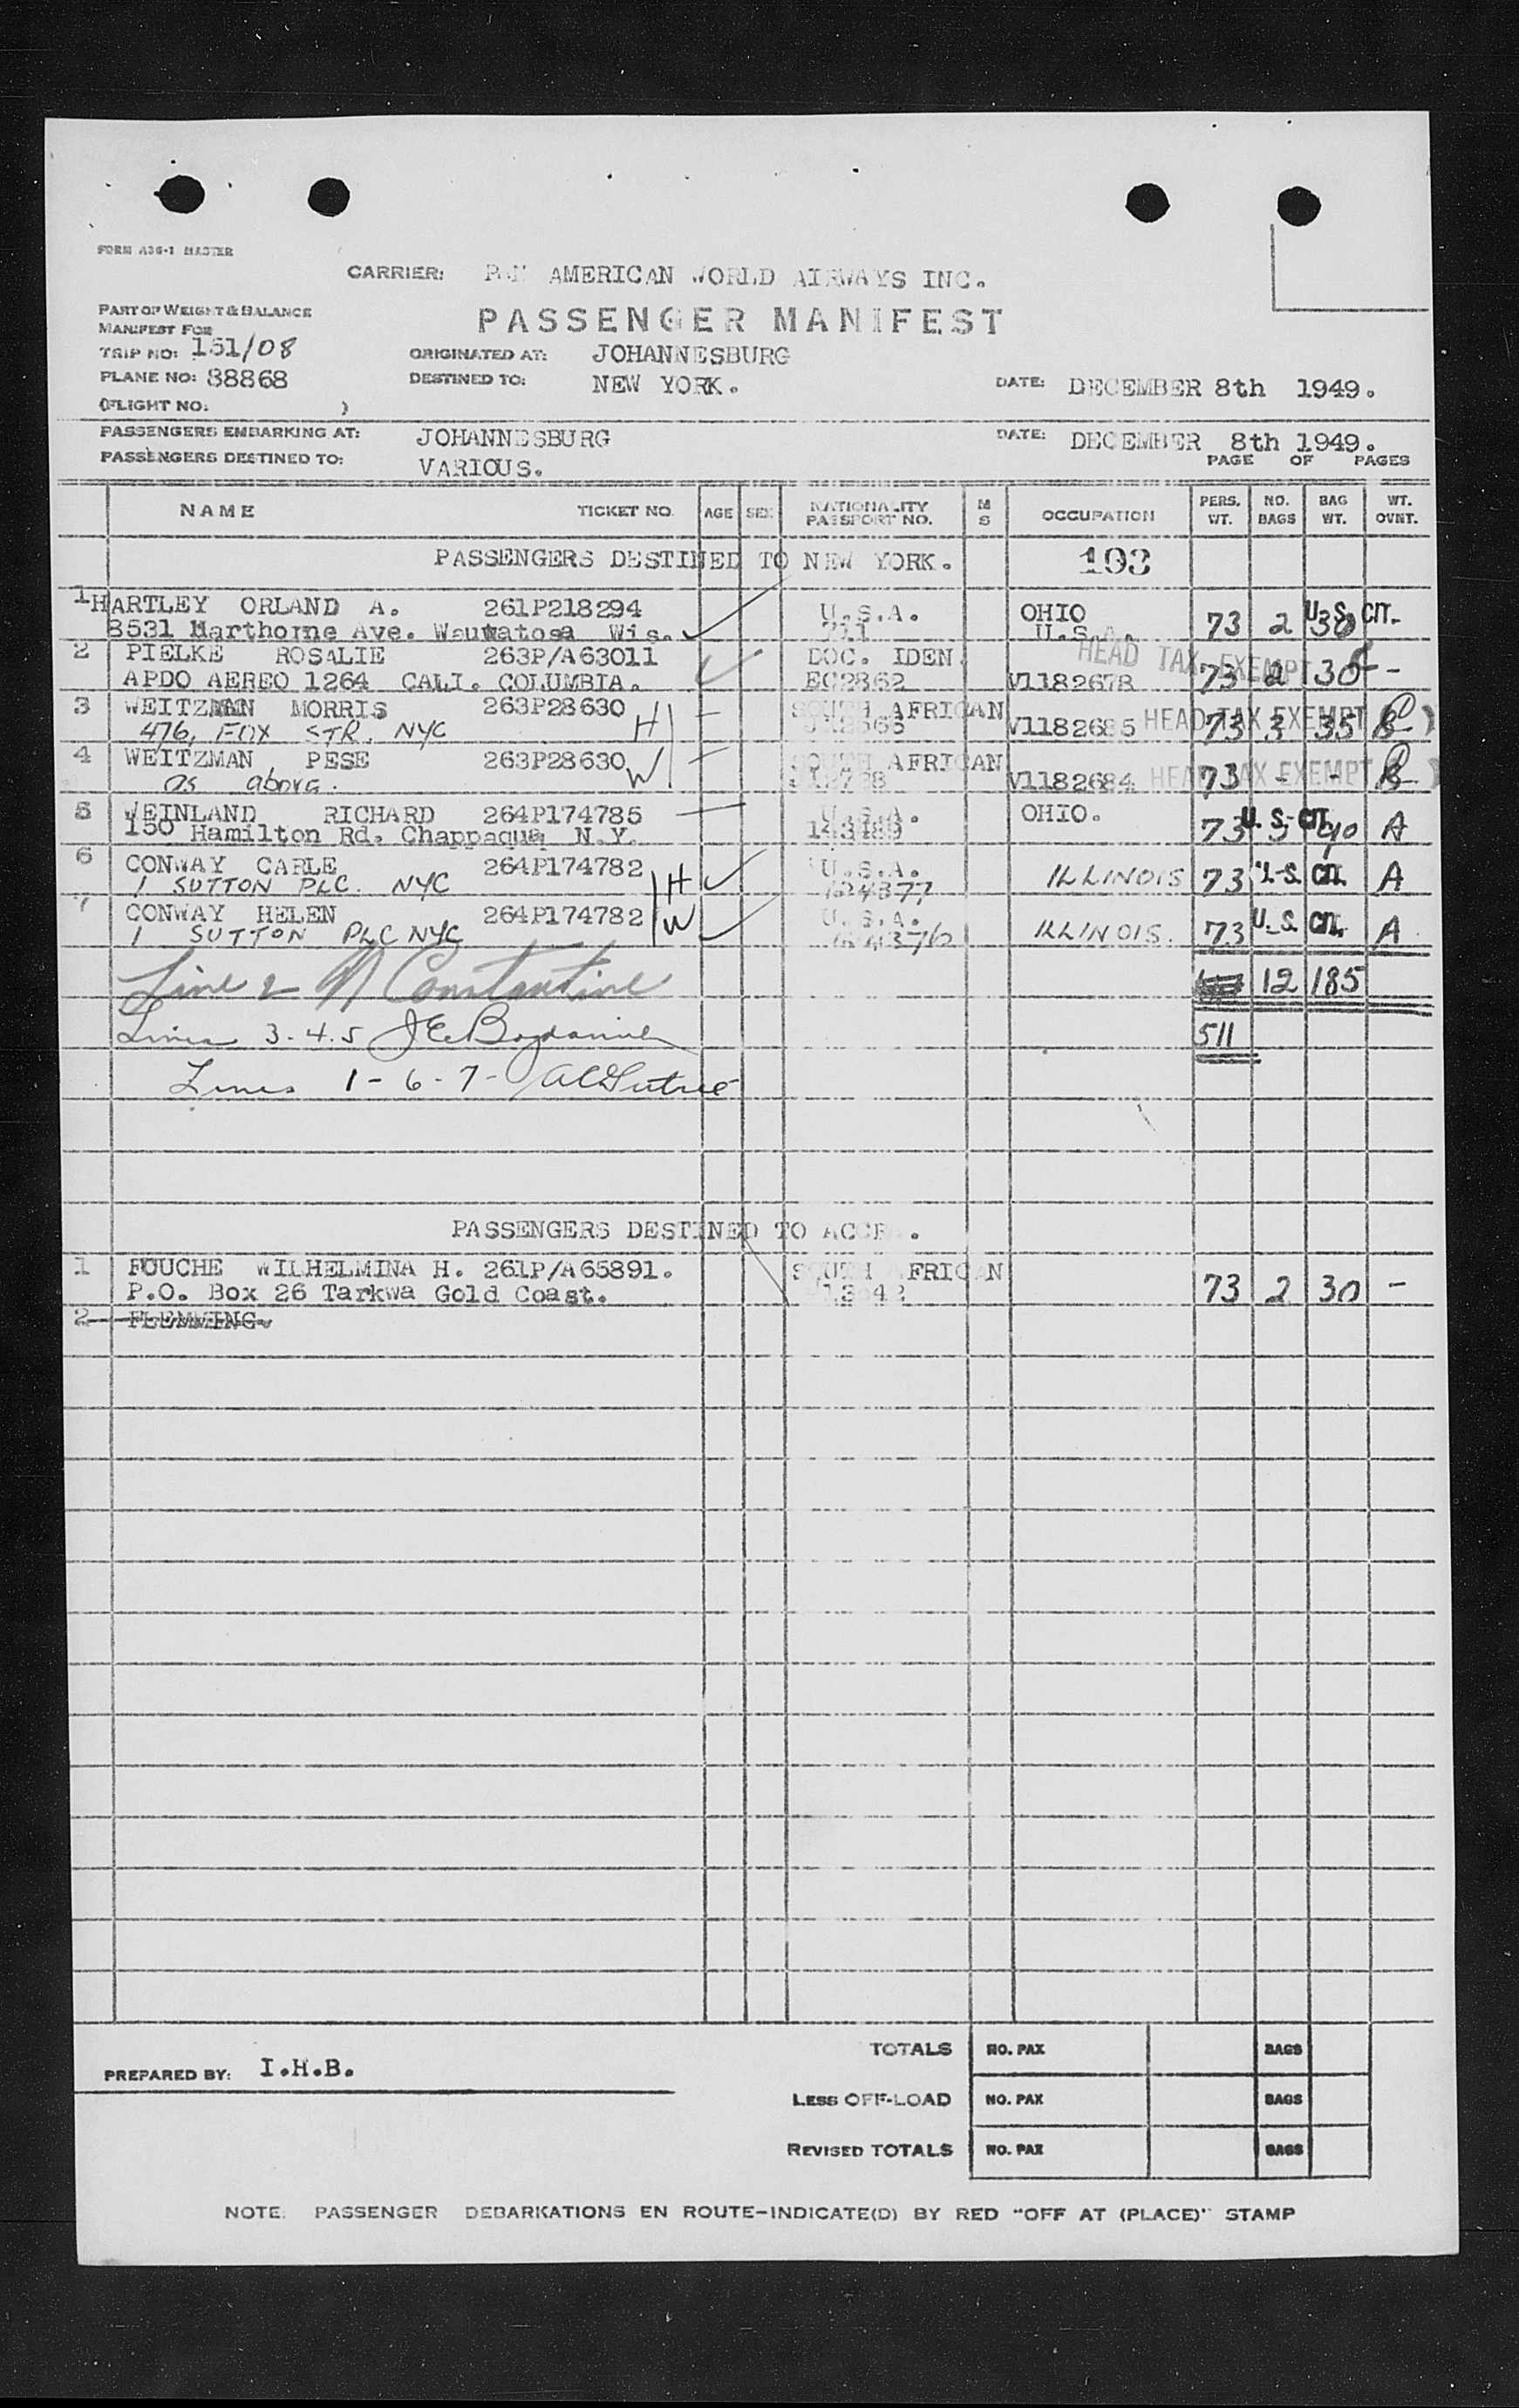 FORM A36-1 MASTER
CARRIER: PAN AMERICAN WORLD AIRWAYS INC.
PART OF WEIGHT & BALANCE
MANIFEST FOR
PASSENGER MANIFEST
TRIP NO: 151/08
ORIGINATED AT: JOHANNESBURG
PLANE NO: 88868
DESTINED TO: NEW YORK.
DATE: DECEMBER 8th 1949.
(FLIGHT NO: )
PASSENGERS EMBARKING AT: JOHANNESBURG
DATE: DECEMBER 8th 1949.
PASSENGERS DESTINED TO: VARIOUS.
PAGE OF PAGES
NAME TICKET NO. AGE SEX NATIONALITY PASSPORT NO. M S OCCUPATION PERS. WT. NO. BAGS BAG WT. WT. OVNT.
PASSENGERS DESTINED TO NEW YORK. 193
1 HARTLEY ORLAND A. 261P218294 U.S.A. OHIO 73 2 30 U.S. CIT.
8531 Marthorne Ave. Wauwatosa Wis. U.S.A.
2 PIELKE ROSALIE 263P/A63011 DOC. IDEN. HEAD TAX EXEMPT
APDO AEREO 1264 CALI. COLUMBIA. EC2862 V1182678 73 2 30 -
3 WEITZMAN MORRIS 263P28630 H SOUTH AFRICAN
476, FOX STR. NYC V1182685 HEAD TAX EXEMPT 73 3 35 B
4 WEITZMAN, PESE 263P28630 W SOUTH AFRICAN
as above. V1182684 HEAD TAX EXEMPT 73 - - B
5 WEINLAND RICHARD 264P174785 U.S.A. OHIO. U.S. CIT.
150 Hamilton Rd. Chappaqua N.Y. 143489 73 5 90 A
6 CONWAY CARLE 264P174782 H U.S.A. ILLINOIS 73 U.S. CIT. A
1 SUTTON PLC. NYC
7 CONWAY HELEN 264P174782 W U.S.A. ILLINOIS. 73 U.S. CIT. A
1 SUTTON PLC NYC
Line 2 N Constantine 12 185
Lines 3-4-5 511
Lines 1-6-7-
PASSENGERS DESTINED TO ACCRA.
1 FOUCHE WILHELMINA H. 261P/A65891. SOUTH AFRICAN 73 2 30 -
P.O. Box 26 Tarkwa Gold Coast.
2 FLEMMING.
PREPARED BY: I.H.B.
TOTALS NO. PAX BAGS
LESS OFF-LOAD NO. PAX BAGS
REVISED TOTALS NO. PAX BAGS
NOTE: PASSENGER DEBARKATIONS EN ROUTE-INDICATE(D) BY RED "OFF AT (PLACE)" STAMP